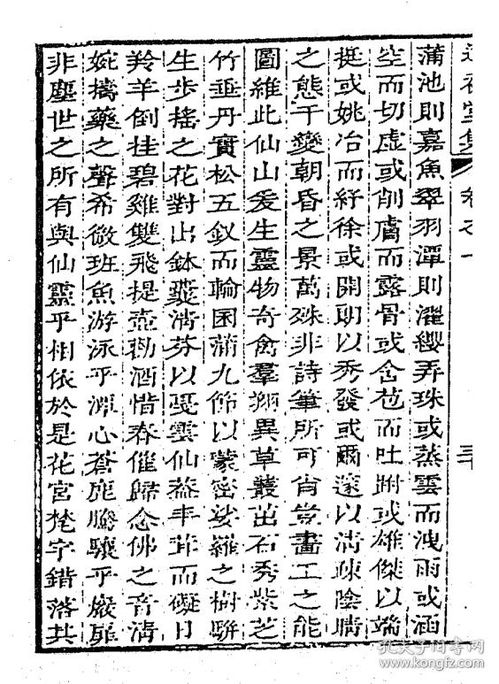 蒲池則嘉魚翠羽潭則濯纓弄珠或蒸雲而洩雨或涵
空而切虛或削膚而露骨或含苞而吐跗或雄傑以端
挺或姚冶而紓徐或開朗以秀發或邃以清疎陰晴
之態千變朝昏之景萬殊非詩筆所可肖豈畫工之能
圖維此仙山爰生靈物奇禽羣翔異草叢茁石秀紫芝
竹垂丹實松五釵而輪囷蒲九節以蒙密娑羅之樹駢
生步搖之花對出鉢曇清芬以戛雲仙葢丰茸而礙日
羚羊倒挂碧雞雙飛提壺勸酒惜春催歸念佛之音清
婉擣藥之聲希微班魚游泳乎淵心蒼鹿騰驤乎巖扉
非塵世之所有與仙靈乎相依於是花宮梵宇錯落其
孔夫子旧书网
www.kongfz.com